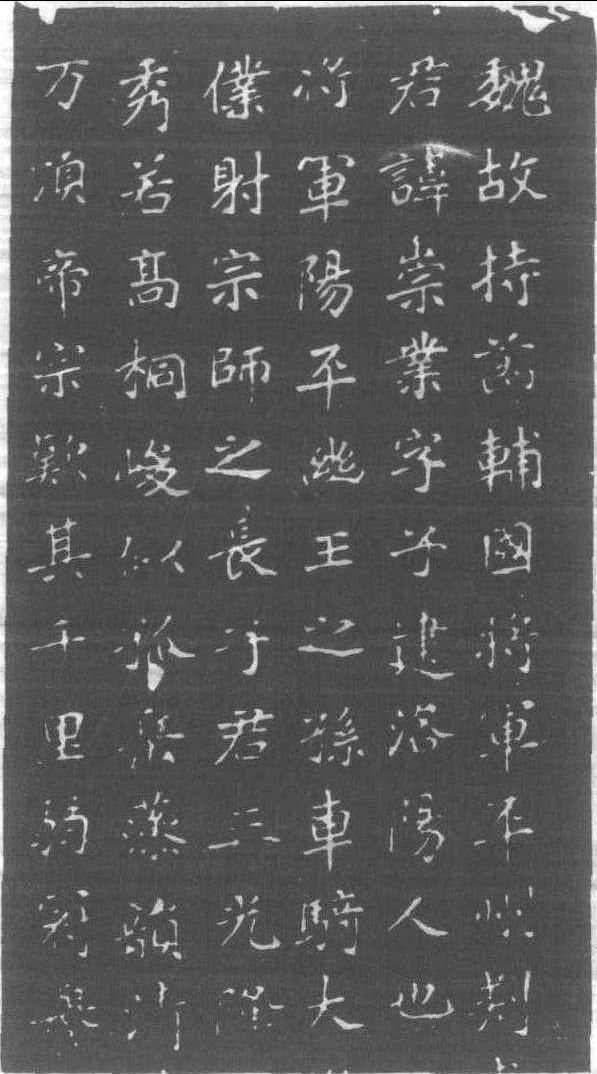 魏故持節輔國將軍平州刾
君諱崇業字子建洛陽人也
將軍陽平幽王之孫車騎大
僕射宗師之長子君三光降
秀若髙桐峻似孤岳韻清
万頃帝宗歎其千里弱冠